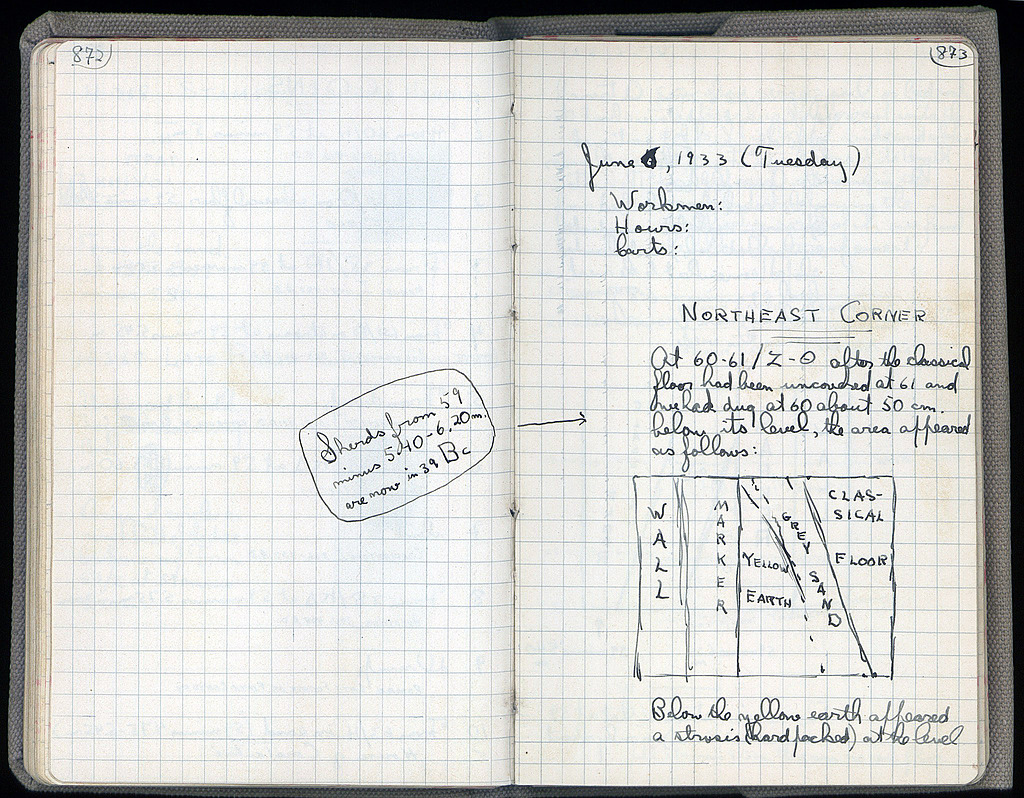 872
Sherds from 59
minus 5.40-6.20m.
are now in 39 BC
873
June 6, 1933 (Tuesday)
Workmen:
Hours:
Carts:
NORTHEAST CORNER
At 60-61/Z-Θ after the classical
floor had been uncovered at 61 and
we had dug at 60 about 50 cm.
below its level, the area appeared
as follows:
WALL
MARKER
YELLOW
EARTH
GREY
SAND
CLAS-
SICAL
FLOOR
Below the yellow earth appeared
a strosis (hard packed) at the level